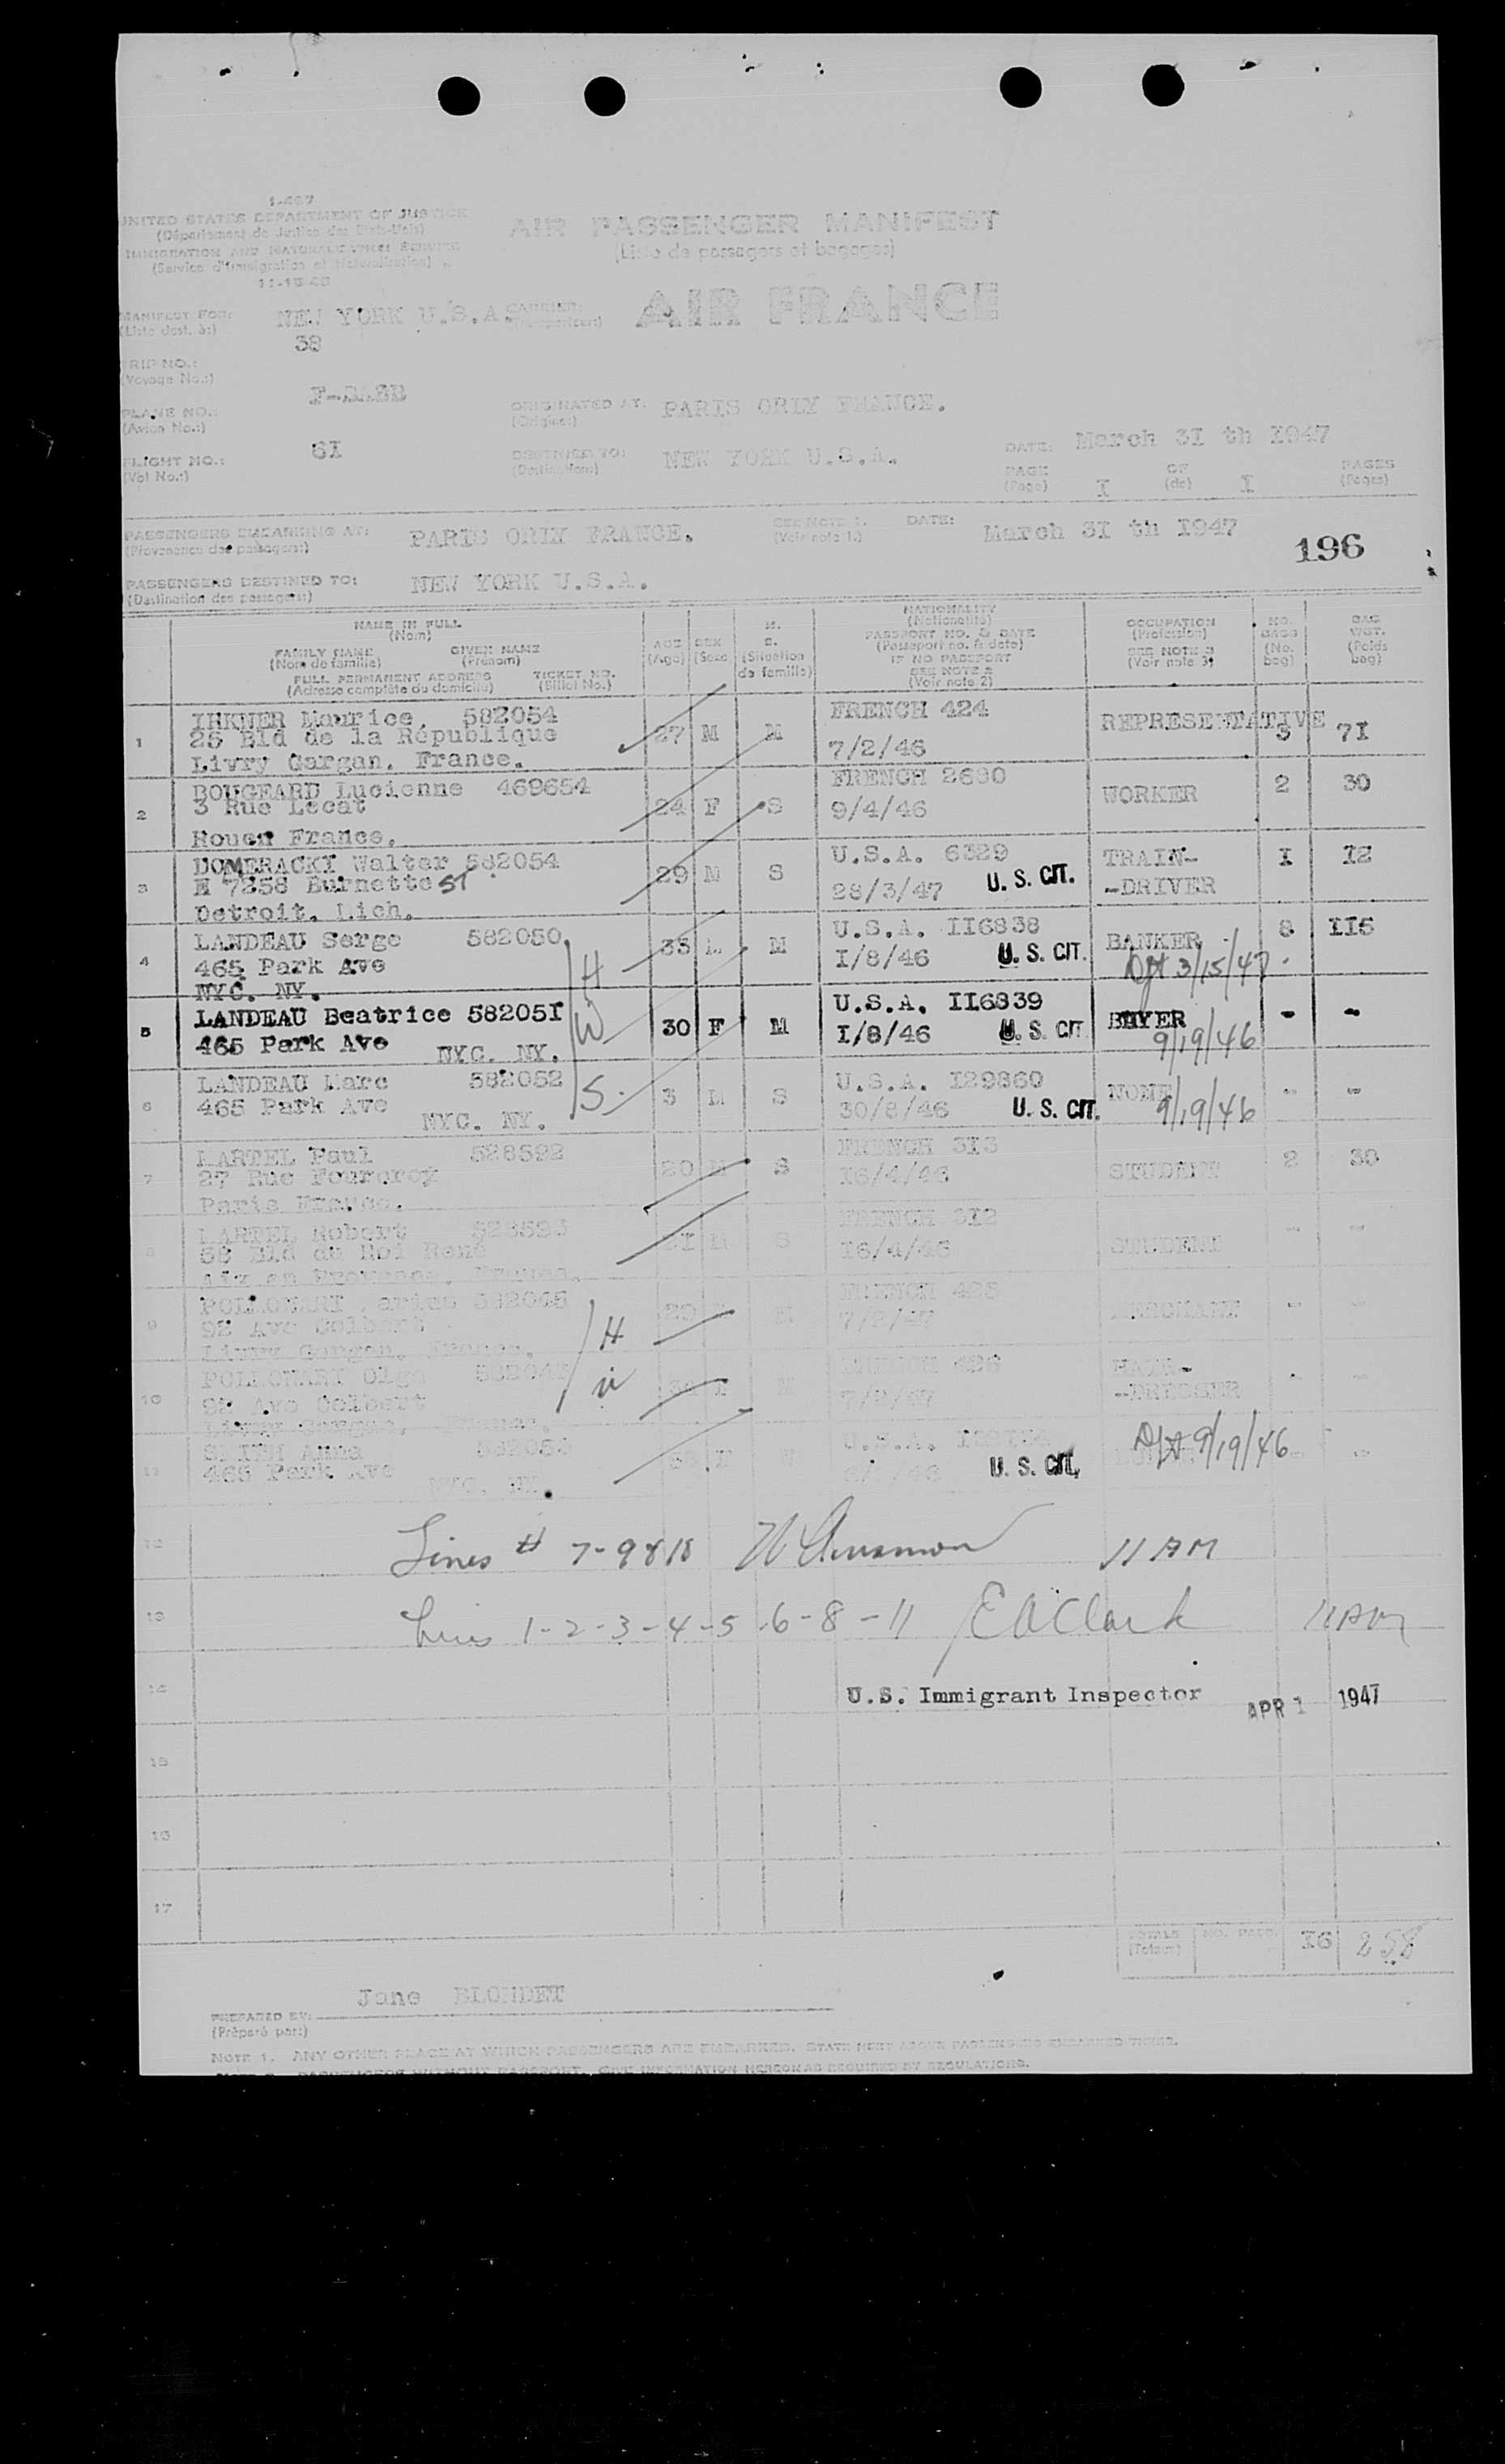 1-467
UNITED STATES DEPARTMENT OF JUSTICE
(Département de Justice des Etats-Unis)
IMMIGRATION AND NATURALIZATION SERVICE
(Service d'Immigration et Naturalisation)
11-15-45
AIR PASSENGER MANIFEST
(Liste de passagers et bagages)
MANIFEST FOR: NEW YORK U.S.A. CARRIER: AIR FRANCE
(Liste dest. à:) (Transporteurs)
38
TRIP NO.:
(Voyage No.:)
PLANE NO.: ORIGINATED AT: PARIS ORLY FRANCE.
(Avion No.:) (Origine:)
FLIGHT NO.: 6I DESTINED TO: NEW YORK U.S.A. DATE: March 3I th I947
(Vol No.:) (Destination:) PAGE I OF I PAGES
(Page) (de) (Pages)
PASSENGERS EMBARKING AT: PARIS ORLY FRANCE. SEE NOTE 1. DATE: March 3I th I947
(Provenance des passagers:) (Voir note 1.)
196
PASSENGERS DESTINED TO: NEW YORK U.S.A.
(Destination des passagers:)
NAME IN FULL
(Nom)
FAMILY NAME GIVEN NAME
(Nom de famille) (Prénom)
FULL PERMANENT ADDRESS TICKET NO.
(Adresse complète du domicile) (Billet No.)
AGE
(Age)
SEX
(Sexe)
M.
S.
(Situation
de famille)
NATIONALITY
(Nationalité)
PASSPORT NO. & DATE
(Passeport no. & date)
IF NO PASSPORT
SEE NOTE 2
(Voir note 2)
OCCUPATION
(Profession)
SEE NOTE 3
(Voir note 3)
NO.
BAGS
(No.
bag)
BAG
WGT.
(Poids
bag)
1 IHKNER Maurice. 582054 27 M M FRENCH 424 REPRESENTATIVE 3 7I
25 Bld de la République 7/2/46
Livry Gargan. France.
2 BOUGEARD Lucienne 469654 24 F S FRENCH 2690 WORKER 2 30
3 Rue Lecat 9/4/46
Rouen France.
3 DOMERACKI Walter 582054 29 M S U.S.A. 6329 TRAIN- I I2
E 7258 Burnette ST 28/3/47 U. S. CIT. -DRIVER
Detroit. Lich.
4 LANDEAU Serge 582050 H 35 M M U.S.A. II6838 BANKER 8 II5
465 Park Ave I/8/46 U. S. CIT. Dpt 3/15/47
NYC. NY.
5 LANDEAU Beatrice 58205I W 30 F M U.S.A. II6839 BUYER - -
465 Park Ave NYC. NY. I/8/46 U. S. CIT 9/19/46
6 LANDEAU Marc 582052 S. 3 M S U.S.A. I29860 NONE - -
465 Park Ave 30/8/46 U. S. CIT. 9/19/46
NYC. NY.
7 MARTEL Paul 528592 20 M S FRENCH 3I3 STUDENT 2 38
27 Rue Fourcroy I6/4/46
Paris France.
8 MARTEL Robert 528593 M S FRENCH 3I2 STUDENT - -
58 Bld du Roi René I6/4/46
Aix en Provence. France.
9 H 29 M FRENCH 425 MERCHANT - -
92 Ave Colbert 7/2/47
Livry Gargan. France.
10 Olga W F M FRENCH 426 HAIR- - -
92 Ave Colbert 7/2/47 -DRESSER
Livry Gargan. France.
11 SMITH Anna F U.S.A. Dpt 9/19/46 - -
465 Park Ave U. S. CIT,
NYC. NY.
12 Lines # 7-9&10 11 AM
13 Lines 1-2-3-4-5-6-8-11 E A Clark 11 AM
14 U.S. Immigrant Inspector APR 1 1947
15
16
17
TOTALS NO. PASS. I6 258
(Totaux)
Jane BLONDET
PREPARED BY:
(Préparé par:)
NOTE 1. ANY OTHER PLACE AT WHICH PASSENGERS ARE EMBARKED. STATE NEXT ABOVE PASSENGERS EMBARKED THERE.
NOTE 2. PASSENGERS WITHOUT PASSPORT. GIVE INFORMATION HEREON AS REQUIRED BY REGULATIONS.